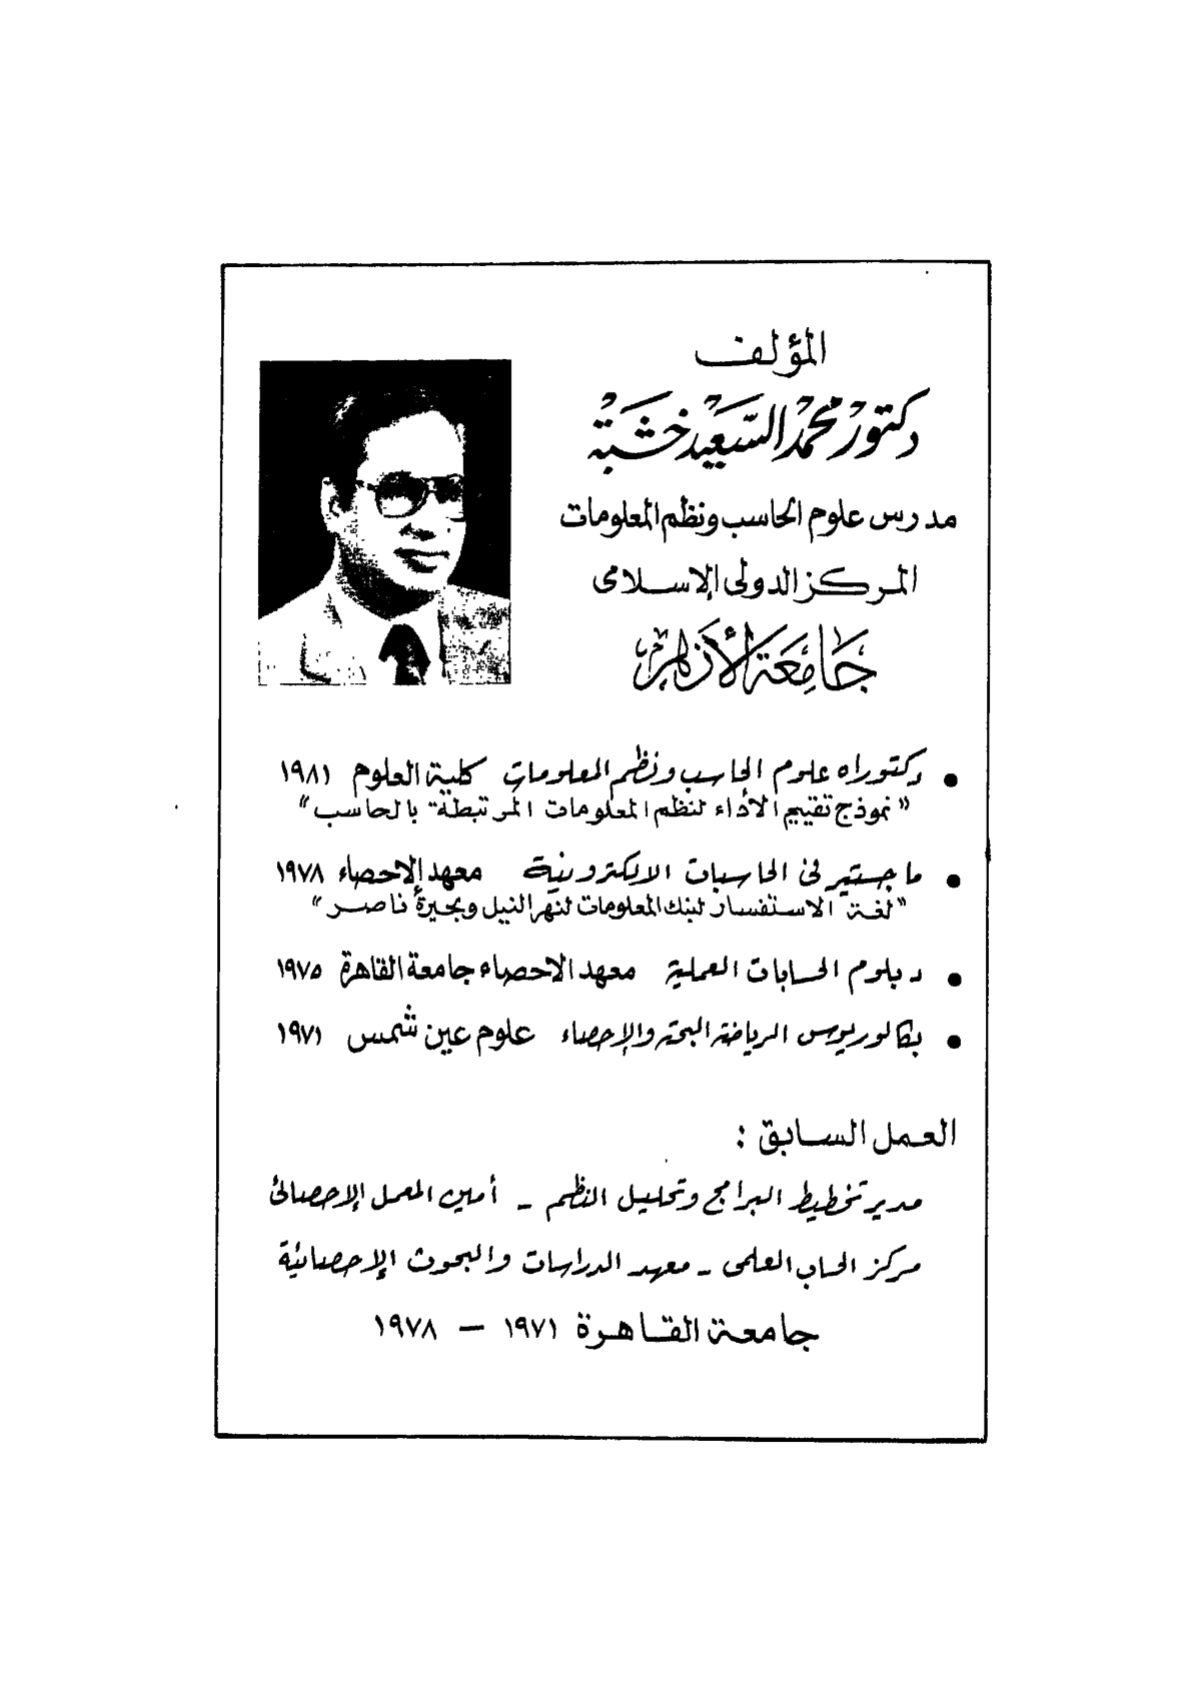 المؤلف
دكتور محمد السعيد خشبة
مدرس علوم الحاسب ونظم المعلومات
المركز الدولى الإسلامى
جامعة الأزهر
• دكتوراه علوم الحاسب ونظم المعلومات كلية العلوم ١٩٨١
« نموذج تقييم الأداء لنظم المعلومات المرتبطة بالحاسب »
• ماجستير فى الحاسبات الالكترونية معهد الإحصاء ١٩٧٨
« لغة الاستفسار لبنك المعلومات لنهر النيل وبحيرة ناصر »
• دبلوم الحسابات العملية معهد الاحصاء جامعة القاهرة ١٩٧٥
• بكالوريوس الرياضة البحتة والإحصاء علوم عين شمس ١٩٧١
العمل السابق :
مدير تخطيط البرامج وتحليل النظم – أمين المعمل الإحصائى
مركز الحساب العلمى – معهد الدراسات والبحوث الإحصائية
جامعة القاهرة ١٩٧١ – ١٩٧٨